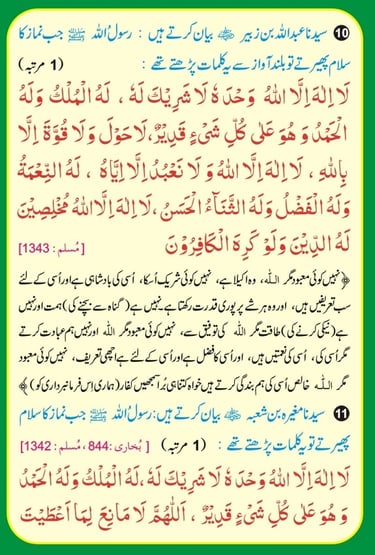 10 سیدنا عبداللہ بن زبیر ﷜ بیان کرتے ہیں : رسولُ اللہ ﷺ جب نماز کا
سلام پھیرتے تو بلند آواز سے یہ کلمات پڑھتے تھے : (1 مرتبہ)
لَا اِلٰهَ اِلَّا اللهُ وَحْدَهٗ لَا شَرِيْكَ لَهٗ ، لَهُ الْمُلْكُ وَلَهُ
الْحَمْدُ وَهُوَ عَلٰى كُلِّ شَيْءٍ قَدِيْرٌ،لَاحَوْلَ وَلَا قُوَّةَ اِلَّا
بِاللهِ ، لَا اِلٰهَ اِلَّا اللهُ وَ لَا نَعْبُدُ اِلَّا اِيَّاهُ ، لَهُ النِّعْمَةُ
وَلَهُ الْفَضْلُ وَلَهُ الثَّنَاءُ الْحَسَنُ ،لَا اِلٰهَ اِلَّا اللهُ مُخْلِصِيْنَ
لَهُ الدِّيْنَ وَلَوْ كَرِهَ الْكَافِرُوْنَ [مُسلم : 1343]
﴿نہیں کوئی معبود مگر اللہ، وہ اکیلا ہے، نہیں کوئی شریک اُسکا، اُسی کی بادشاہی ہے اور اُسی کے لئے
سب تعریفیں ہیں، اور وہ ہر شے پر پوری قدرت رکھتا ہے۔ نہیں ہے (گناہ سے بچنے کی) ہمت اور نہیں
ہے (نیکی کرنے کی) طاقت مگر اللہ کی توفیق سے، نہیں کوئی معبود مگر اللہ اور نہیں ہم عبادت کرتے
مگر اُسی کی، اُسی کی نعتیں ہیں، اور اُسی کا فضل ہے اور اُسی کے لئے ہے اچھی تعریف، نہیں کوئی معبود
مگر اللہ خالص اُسی کی ہم بندگی کرتے ہیں خواہ کتنا ہی بُرا سمجھیں کفار (ہماری اِس فرمانبرداری کو)﴾
11 سیدنا مغیرہ بن شعبہ ﷜ بیان کرتے ہیں: رسولُ اللہ ﷺ جب نماز کا سلام
پھیرتے تو یہ کلمات پڑھتے تھے : (1 مرتبہ) [بُخاری : 844، مُسلم : 1342]
لَا اِلٰهَ اِلَّا اللهُ وَحْدَهٗ لَا شَرِيْكَ لَهٗ، لَهُ الْمُلْكُ وَلَهُ الْحَمْدُ
وَهُوَ عَلٰى كُلِّ شَيْءٍ قَدِيْرٌ ، اَللّٰهُمَّ لَا مَانِعَ لِمَا اَعْطَيْتَ